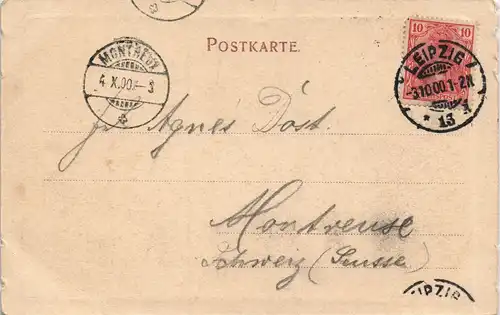 POSTKARTE.
10
MONTREUX
4.X.00.-3
LEIPZIG
-3.10.00.1-2N
* 13
Agnes Dost.
Montreuse
Schweiz (Suisse)
LEIPZIG